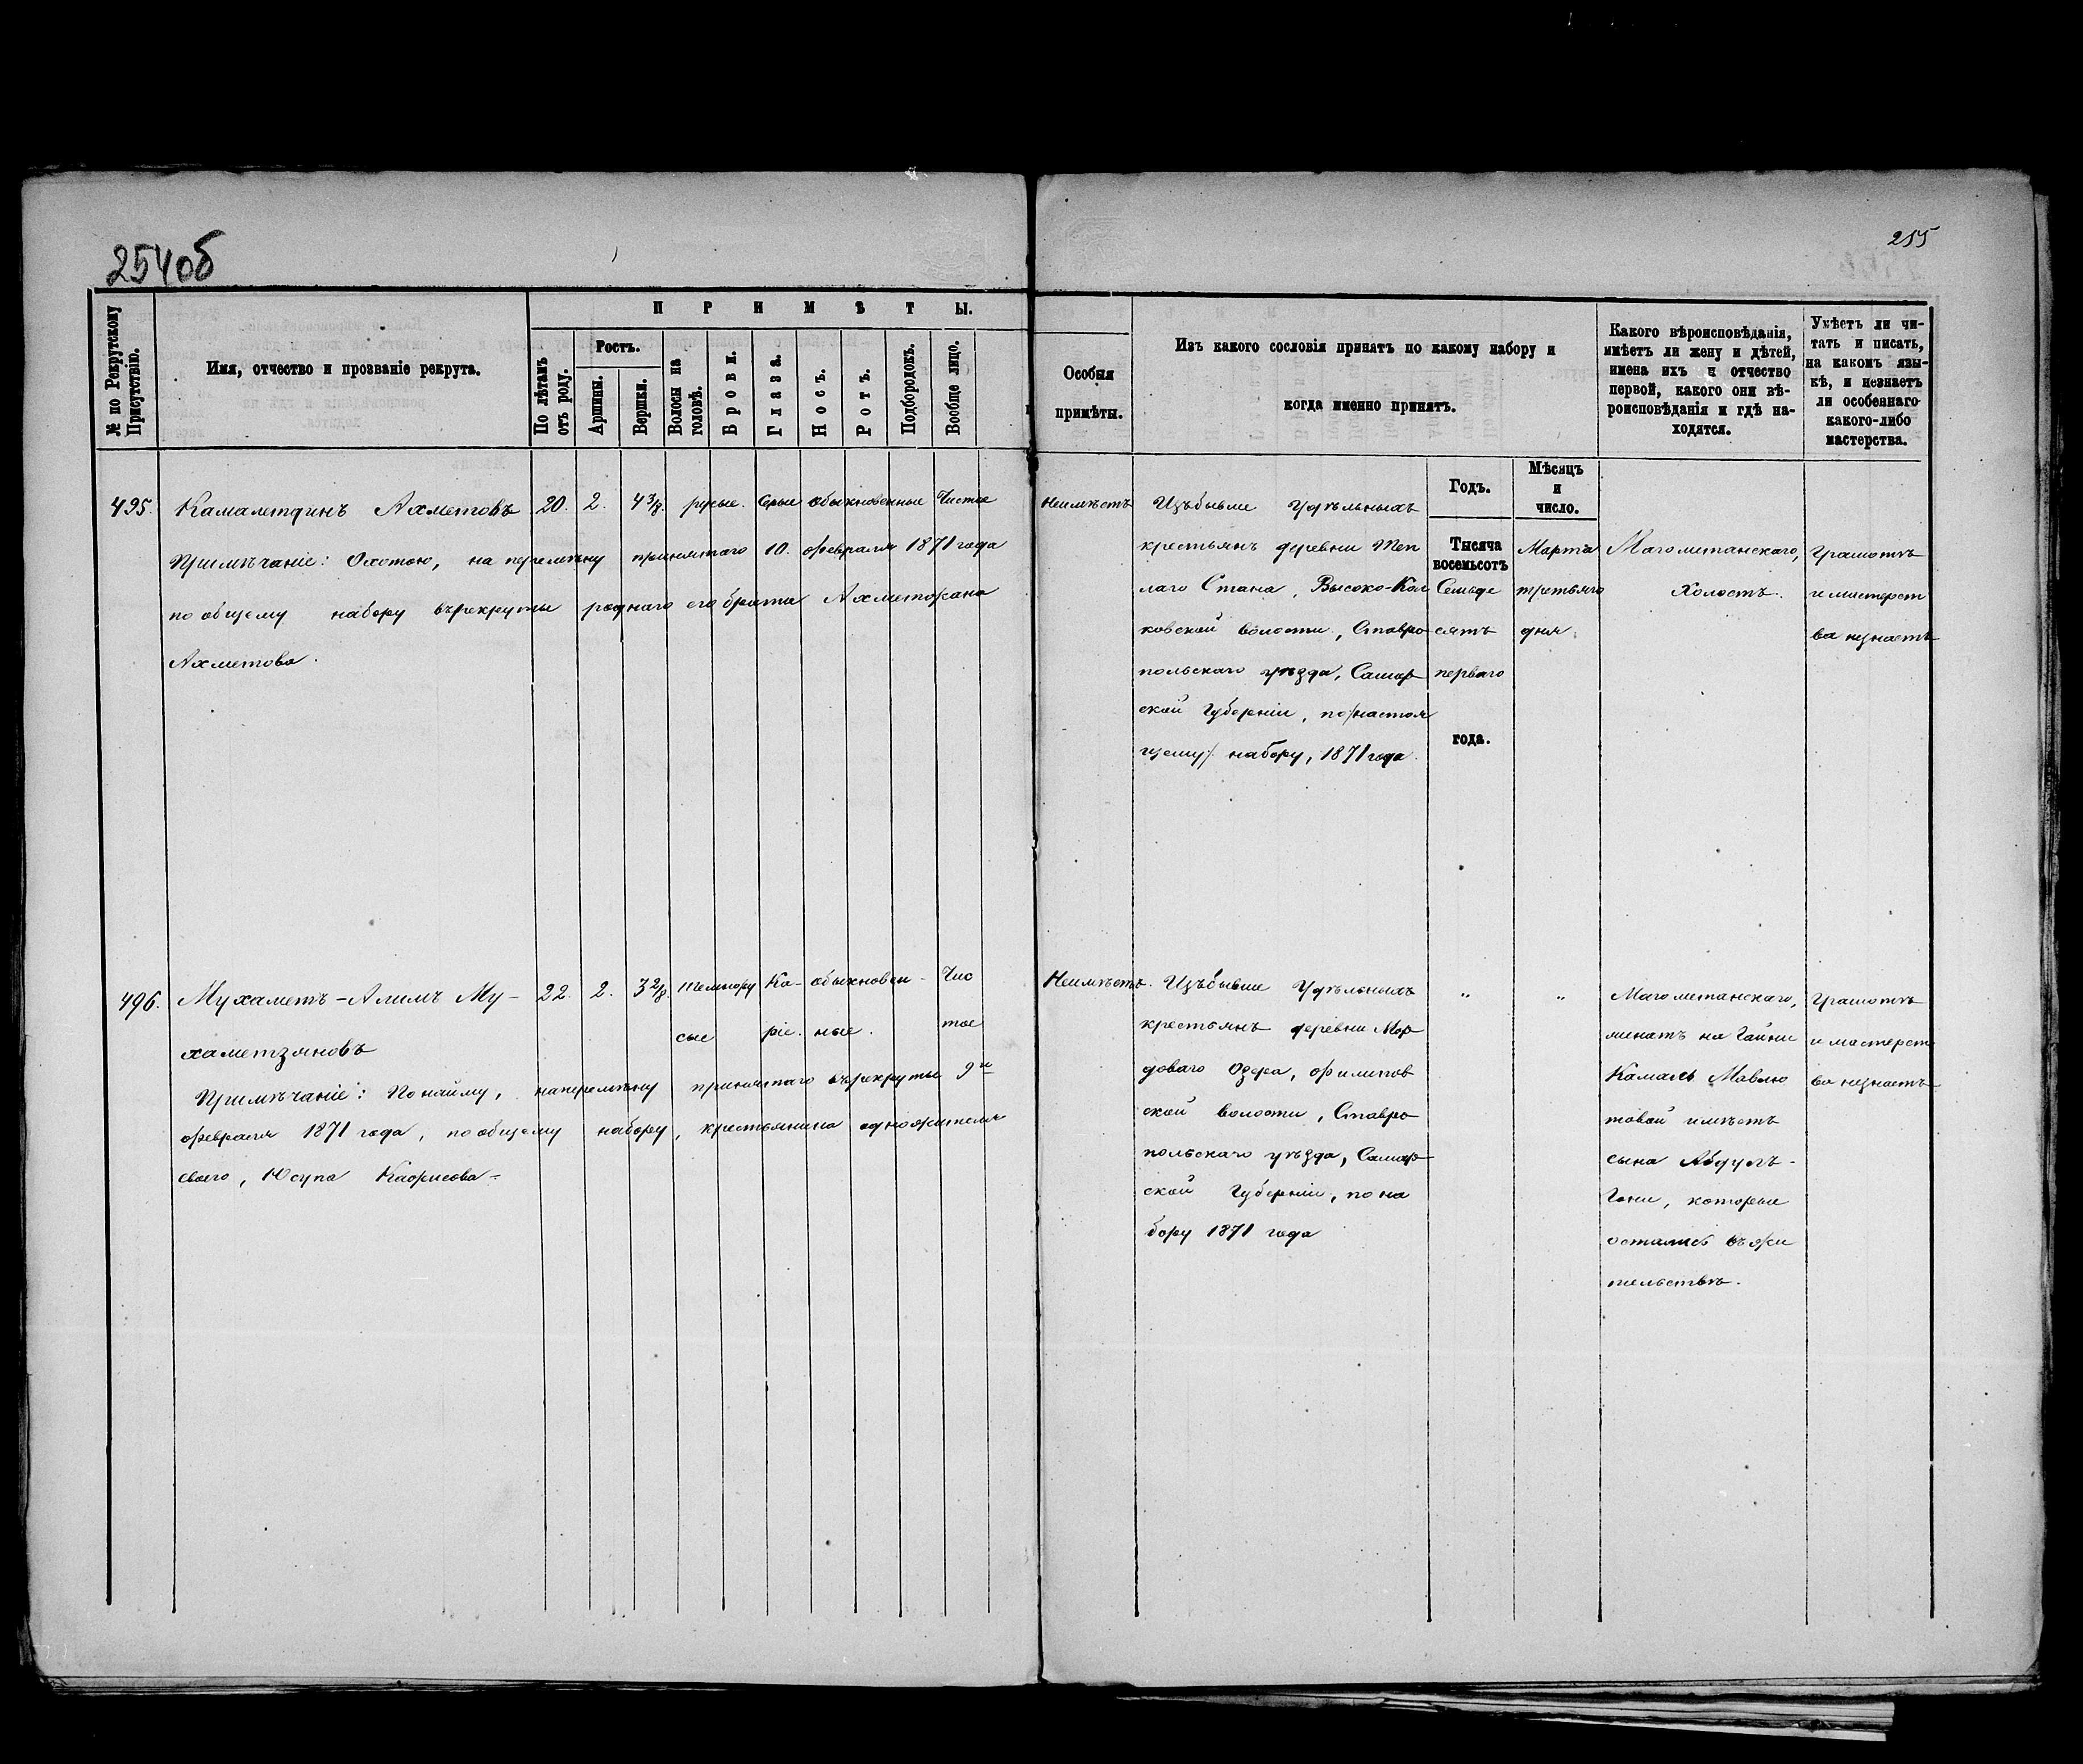 254об
255
№ по Рекрутскому Присутствію.
Имя, отчество и прозваніе рекрута.
ПРИМѢТЫ.
По лѣтамъ отъ роду.
Ростъ.
Аршины.
Вершки.
Волосы на головѣ.
Брови.
Глаза.
Носъ.
Ротъ.
Подбородокъ.
Вообще лицо.
Особыя
примѣты.
Изъ какого сословія принятъ по какому набору и
когда именно принятъ.
Годъ.
Мѣсяцъ
и
число.
Какого вѣроисповѣданія,
имѣетъ ли жену и дѣтей,
имена ихъ и отчество
первой, какого они вѣ-
роисповѣданія и гдѣ на-
ходятся.
Умѣетъ ли чи-
тать и писать,
на какомъ язы-
кѣ, и незнаетъ
ли особеннаго
какого-либо
мастерства.
495. Камалетдинъ Ахметовъ 20. 2. 4 3/8. русые. Серые обыкновенные Чистое
Примѣчаніе: Охотою, на перемѣну принятаго 10. февраля 1871 года
по общему набору въ рекруты роднаго его брата Ахметофана
Ахметова.
Неимѣетъ
Изъ бывше Удѣльныхъ
крестьянъ деревни Теп
лаго Стана, Высоко-Кол
ковской волости, Ставро
польскаго уѣзда, Самар
ской Губерніи, по настоя
щему набору, 1871 года.
Тысяча
восемьсотъ
Семьде
сятъ
перваго
года.
Марта
третьяго
дня.
Магометанскаго,
Холостъ.
Грамотѣ
и мастерст
ва незнаетъ
496. Мухаметъ-Алимъ Му- 22. 2. 3 2/8. темнору Ка- обыкновен- Чис
хаметзяновъ сые ріе. ные. тое
Примѣчаніе: По найму, на перемѣну принятаго въ рекруты 9го
февраля 1871 года, по общему набору, крестьянина одножителя
своего, Юсупа Кафисова-
Неимѣетъ.
Изъ бывше Удѣльныхъ
крестьянъ деревни Мор
доваго Озера, Филипов
ской волости, Ставро
польскаго уѣзда, Самар
ской Губерніи, по на
бору 1871 года
„ „
Магометанскаго,
женатъ на Гайни
Камаль Мавлю
товой имѣетъ
сына Абдулъ-
Гани, которые
остались въ жи
тельствѣ.
Грамотѣ
и мастерст
ва незнаетъ